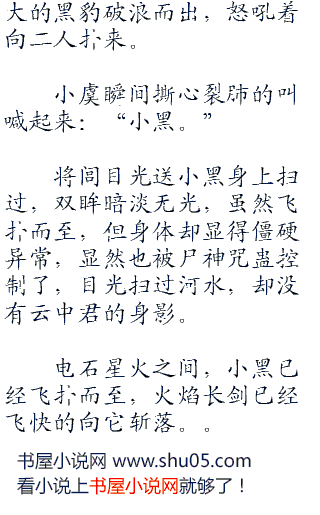 大的黑豹破浪而出，怒吼着
向二人扑来。
小虞瞬间撕心裂肺的叫
喊起来：“小黑。”
将闾目光送小黑身上扫
过，双眸暗淡无光，虽然飞
扑而至，但身体却显得僵硬
异常，显然也被尸神咒蛊控
制了，目光扫过河水，却没
有云中君的身影。
电石星火之间，小黑已
经飞扑而至，火焰长剑已经
飞快的向它斩落。。
书屋小说网 www.shu05.com
看小说上书屋小说网就够了！